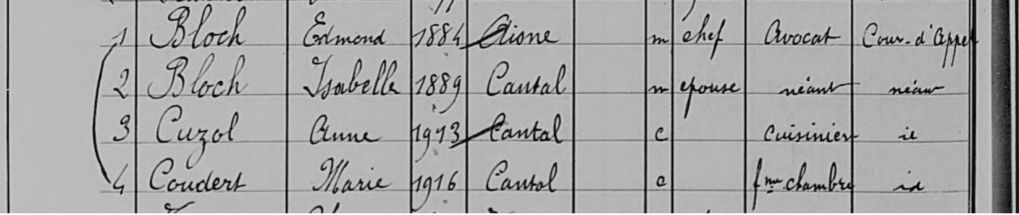 1 Bloch Edmond 1884 m chef Avocat Cour-d'Appel
2 Bloch Isabelle 1889 Cantal m epouse néant néant
3 Cuzol Anne 1913 Cantal c Cuisinier
4 Coudert Marie 1916 Cantal c fme chambre id